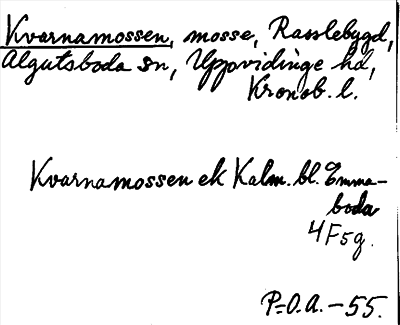 Kvarnamossen, mosse, Rasslebygd,
Algutsboda sn, Uppvidinge hd,
Kronob. l.
Kvarnamossen ek Kalm. bl. Emma-
boda
4F5g.
P-O.A. - 55.